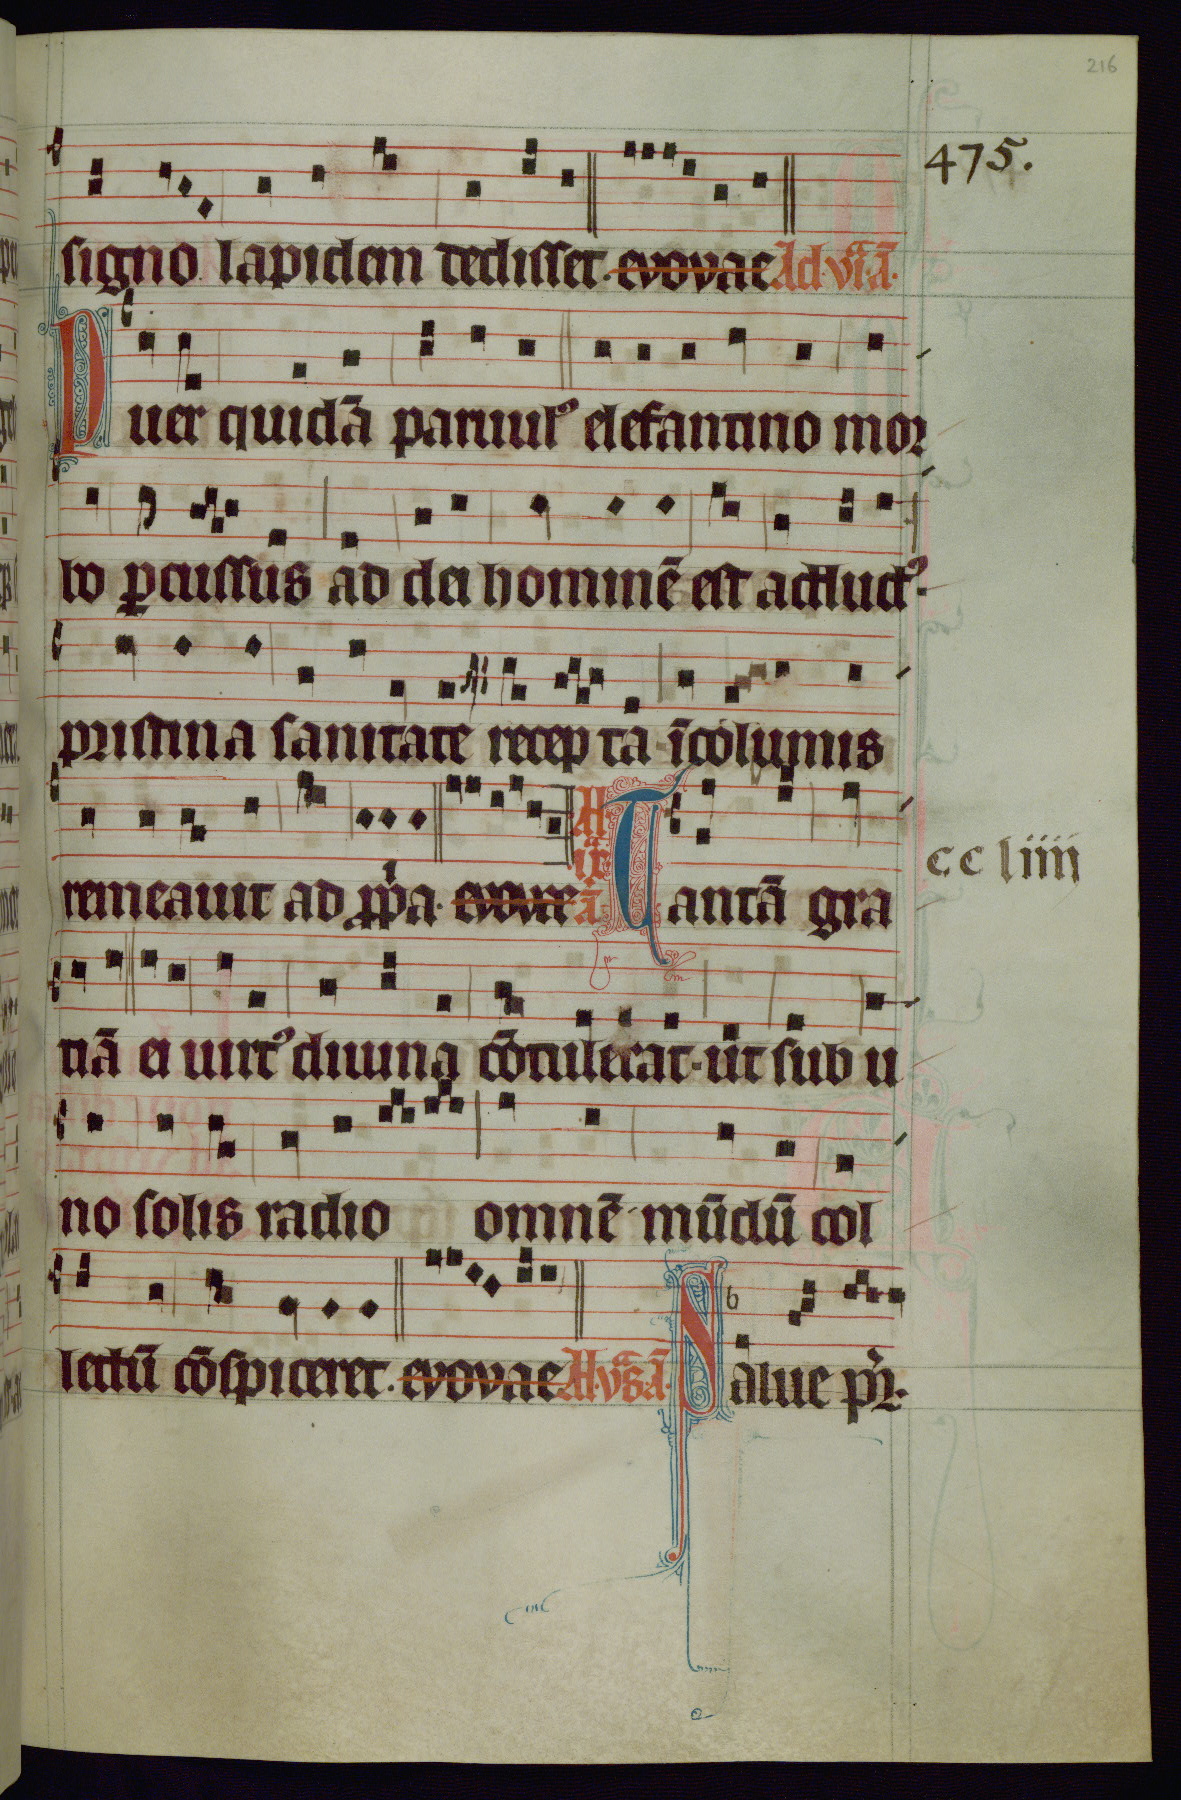 216
475.
signo lapidem dedisset. evovae Ad vr̄ā.
Puer quidā paruulꝰ elefantino mor
bo ꝑcussus ad dei hominē est adductꝰ
pristina sanitate recepta īcolumis
remeauit ad ꝓpͥa. evovae A. Tantā gra
ccliiii
tiā ei uirtꝰ diuina cōtulerat. ut sub u
no solis radio omnē mūdū col
lectū cōspiceret. evovae Salue pr̄.